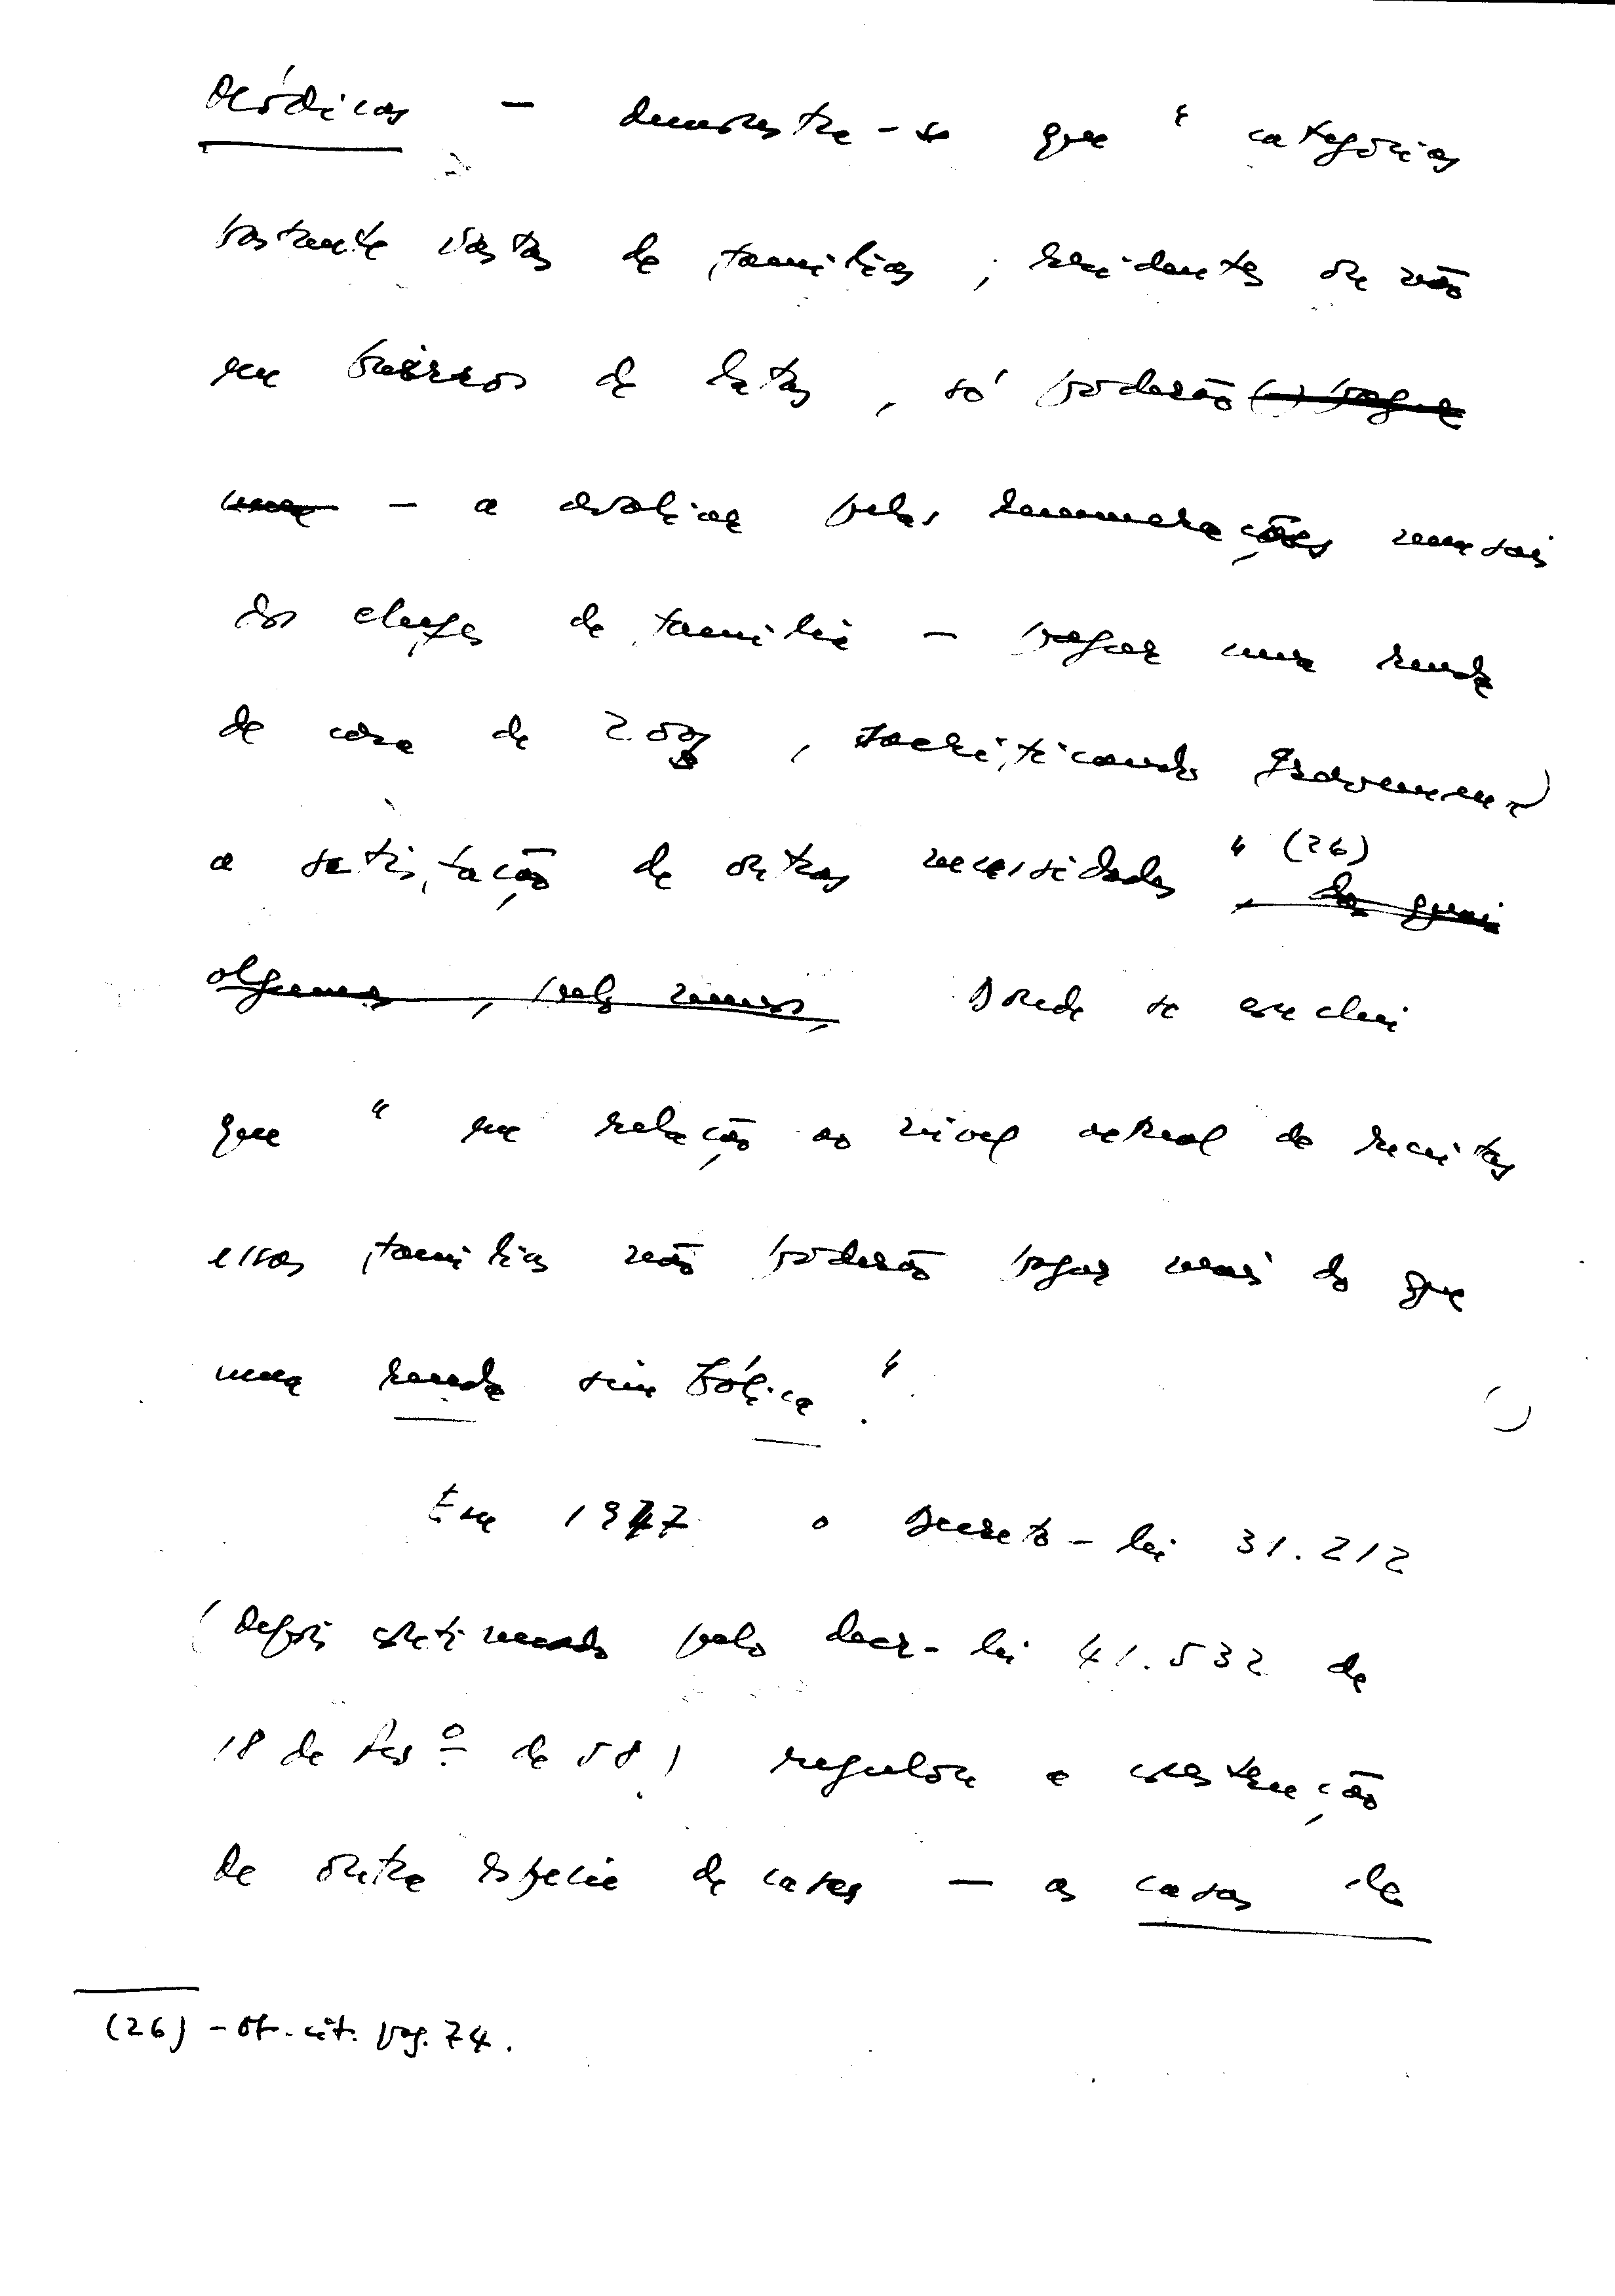 Módicas — demonstra-se que " categorias
bastante vastas de famílias, residentes ou não
em bairros de latas, só poderão (...) pagar
uma — a avaliar pelas remunerações mensais
dos chefes de família — pagar uma renda
de casa de 200$, sacrificando gravemen-
a satisfação de outras necessidades " (26)
, das quais
algumas, pelo menos, Donde se conclui
que " em relação ao nível actual de receitas
essas famílias não poderão pagar mais do que
uma renda simbólica ".
Em 1947 o Decreto-lei 31.212
(depois rectificado pelo decr-lei 41.532 de
18 de Fev.º de 58) regulou a construção
de outra espécie de casas — as casas de
(26) - ob. cit. pag. 74.